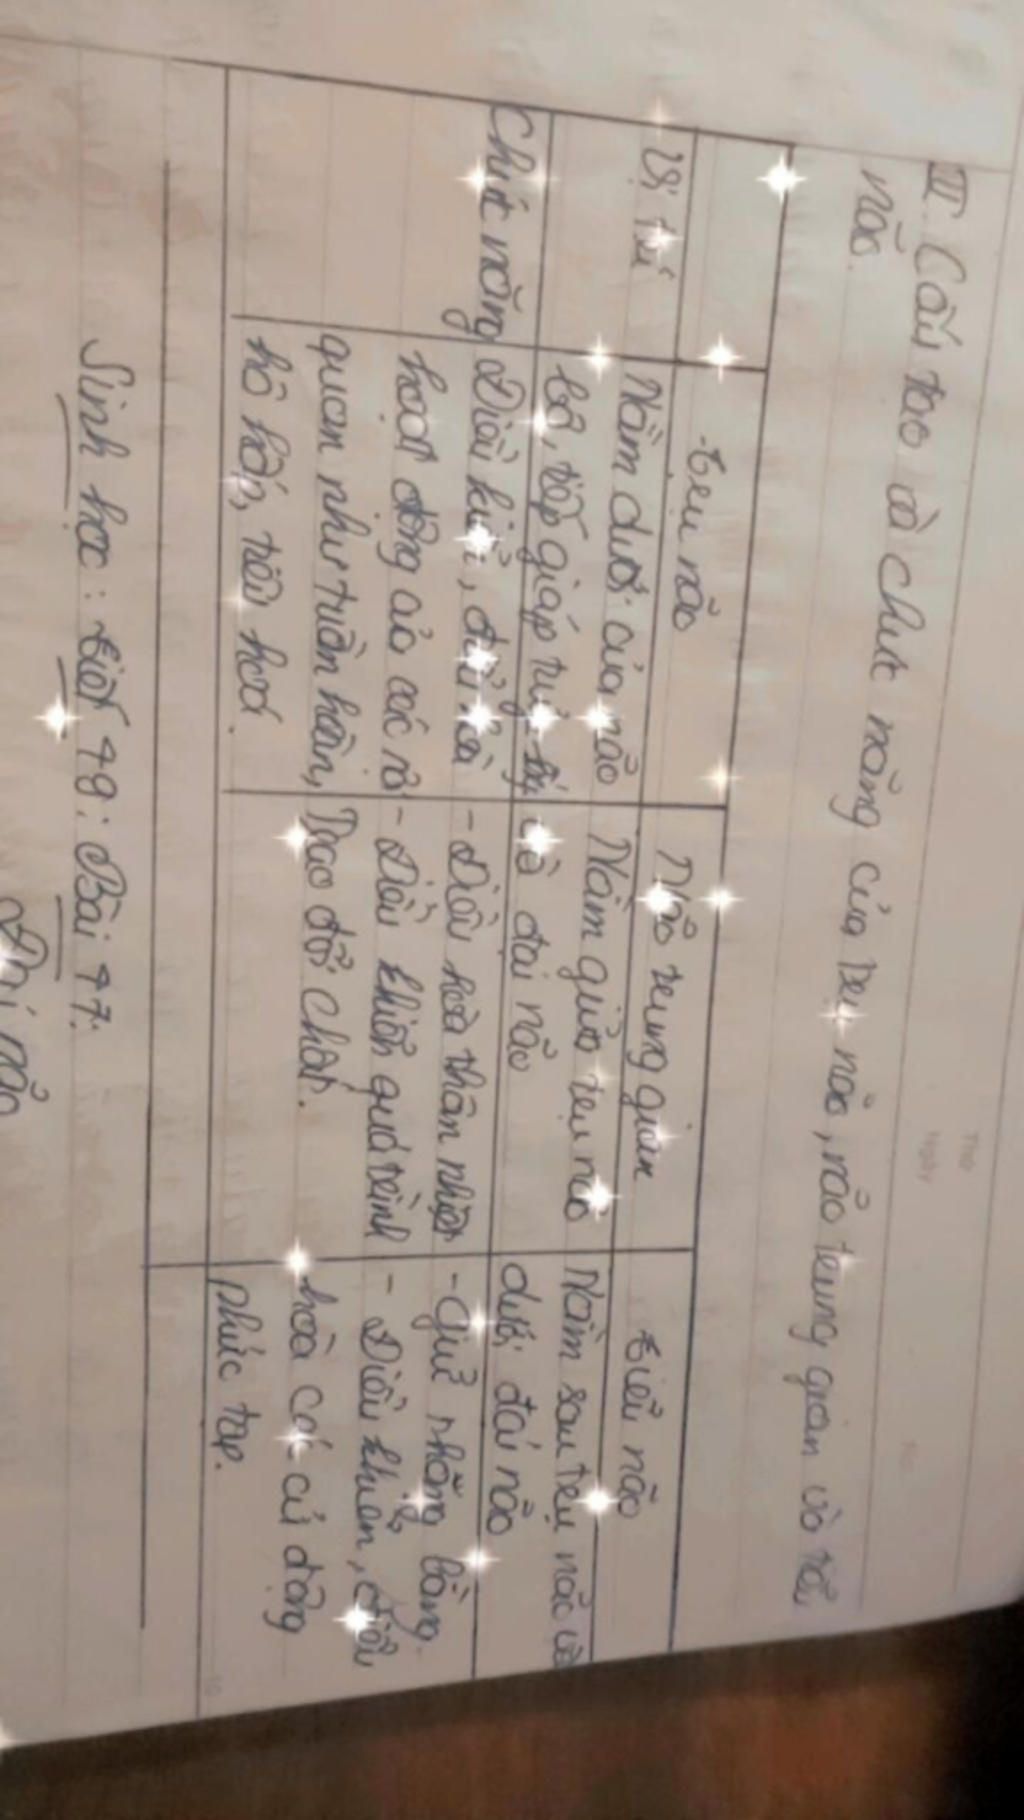 III. Cấu tạo và chức năng của trụ não, não trung gian và tiểu
não.
trụ não
Não trung gian
tiểu não
Vị trí
Nằm dưới của não
bộ, tiếp giáp tuỷ
Nằm giữa trụ não
và đại não
Nằm sau trụ não và
dưới đại não
Chức năng
Điều khiển, điều hoà
hoạt động của các cơ
quan như tuần hoàn,
hô hấp, tiêu hoá.
- Điều hoà thân nhiệt
- Điều khiển quá trình
Trao đổi chất.
- Giữ thăng bằng
- Điều khiển, điều
hoà các cử động
phức tạp.
Sinh học: tiết 48: Bài 47:
Đại não
Thứ
Ngày